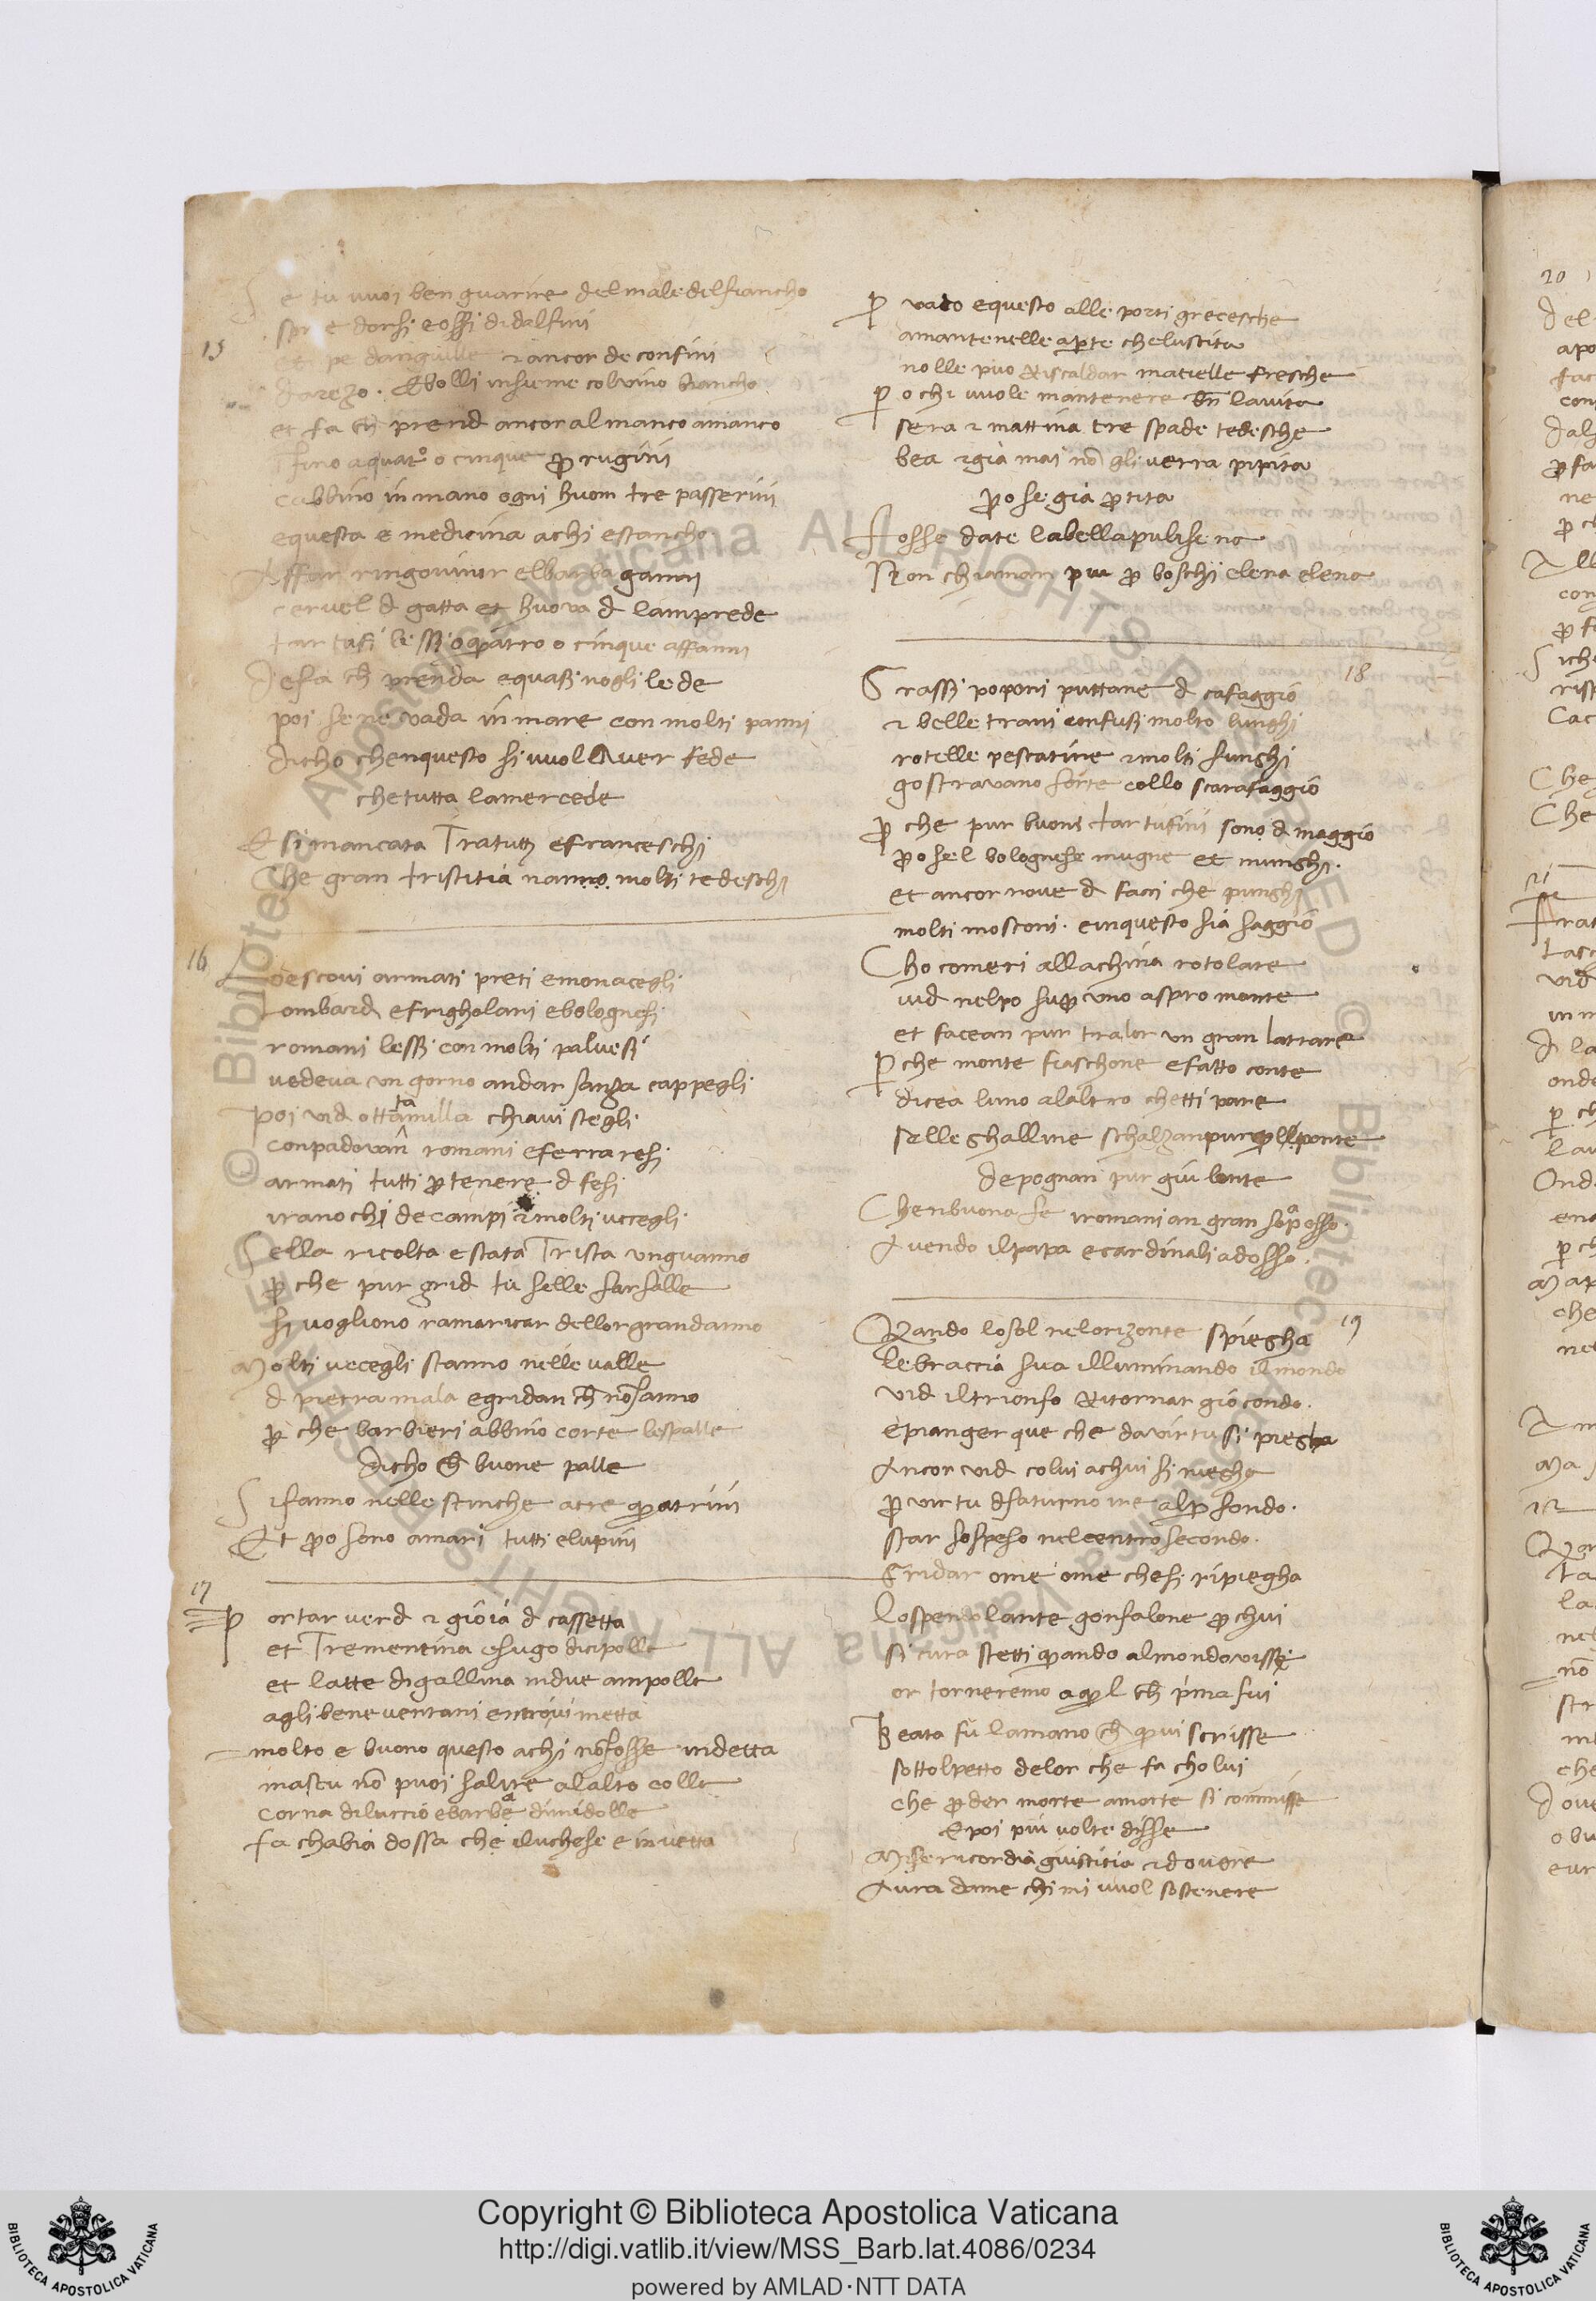 15
Se tu vuoi ben guarire del male del fiancho
dorsi e ossi di dalfini
danguille et ancor de confini
darezo. Ebolli insieme col vino biancho
et fa ch prend ancor al manco amanco
fino aquatº o cinque p rugini
cabbino in mano ogni huom tre passerini
equesta e medicina achi estancho
Affar ringovinir elbarbagianni
cervel d gatta et huova d lamprede
tartufi lessi o quatro o cinque affanni
Sefa ch prenda equassi nogli lede
poi se ne vada in mare con molti panni
dicho chenquesto si vuol Aver fede
che tutta lamercede
E si mancata Tratutti efranceschi
Che gran tristitia nanno molti tedeschi
16
Vescovi armati preti emonacegli
Lombard efrigholani ebolognesi
romani lessi con molti palvesi
vedeva un gorno andar sanza cappegli
Poi vid ottantamilla chiavistegli
conpadovan romani eferraresi
armati tutti p tenere d fesi
iranochi de campi et molti uccegli
Sella ricolta estata Trista unguanno
p che pur grid tu selle farfalle
si vogliono ramaricar dellor grandanno
Molti uccegli stanno nelle valle
d pietra mala egridan ch nosanno
p che barbieri abbino corte lespalle
dicho ch buone palle
Sifanno nelle stinche atre quatrini
Et po sono amari tutti elupini
17
Portar verd et gioia d cassetta
et Trementina esugo dicipolle
et latte digallina indue ampolle
agli beneventani entrovi metta
molto e buono questo achi nofosse indetta
mastu no puoi salire alalto colle
corna diluccio ebarbe dimidolle
fa chabia dossa che iluchese e invetta
P vato equesto alle porti grecesche
amantenelle aperte cheluscita
nolle puo riscaldar matielle fresche
P o chi vuole mantenere bn lavita
sera et mattina tre spade tedesche
bea et gia mai no gli verra pipita
po se gia ptita
Fosse date labellapulisena
Non chiaman piu p boschi elena elena
18
Grassi poponi puttane d cafaggio
et belle travi confusi molto lunghi
rotelle pescatine et molti funghi
gostravano forte collo scarafaggio
p che pur buoni tartufini sono d maggio
po sel bolognese mugne et munghi.
et ancor nove d faci che punghi
molti mosconi. einquesto sia saggio
Cho comeri allachina rotolare
vid nelpo sup uno aspro monte
et facean pur tralor un gran lattare
P che monte fiaschone efatto conte
dicea luno alaltro chetti pare
selle ghalline schalzanpurpellponte
depognan pur giu lonte
Chenbuona fe iromani an gran soposso.
Avendo ilpapa ecardinali adosso.
19
Quando losol nelorizonte spiegha
lebraccia sua illuminando ilmondo
vid iltrionfo ritornar giocondo.
epianger que che davirtu si piegha
Ancor vid colui achui si niegha
p virtu dsaturno ire alp fondo.
star sospeso nelcentro secondo.
Gridar ome ome chesi ripiegha
Lospendolante gonfalone p chui
si cura stetti quando almondo visse
or torneremo aquel ch pma fui
Beata fu lamano ch qui scrisse
sottolpetto delor che fa cholui
che p der morte amorte si commisse
Epoi piu volte disse
Misericordia giustitia et dovere
Aura dame chi mi vuol sostenere
Copyright © Biblioteca Apostolica Vaticana
http://digi.vatlib.it/view/MSS_Barb.lat.4086/0234
powered by AMLAD·NTT DATA